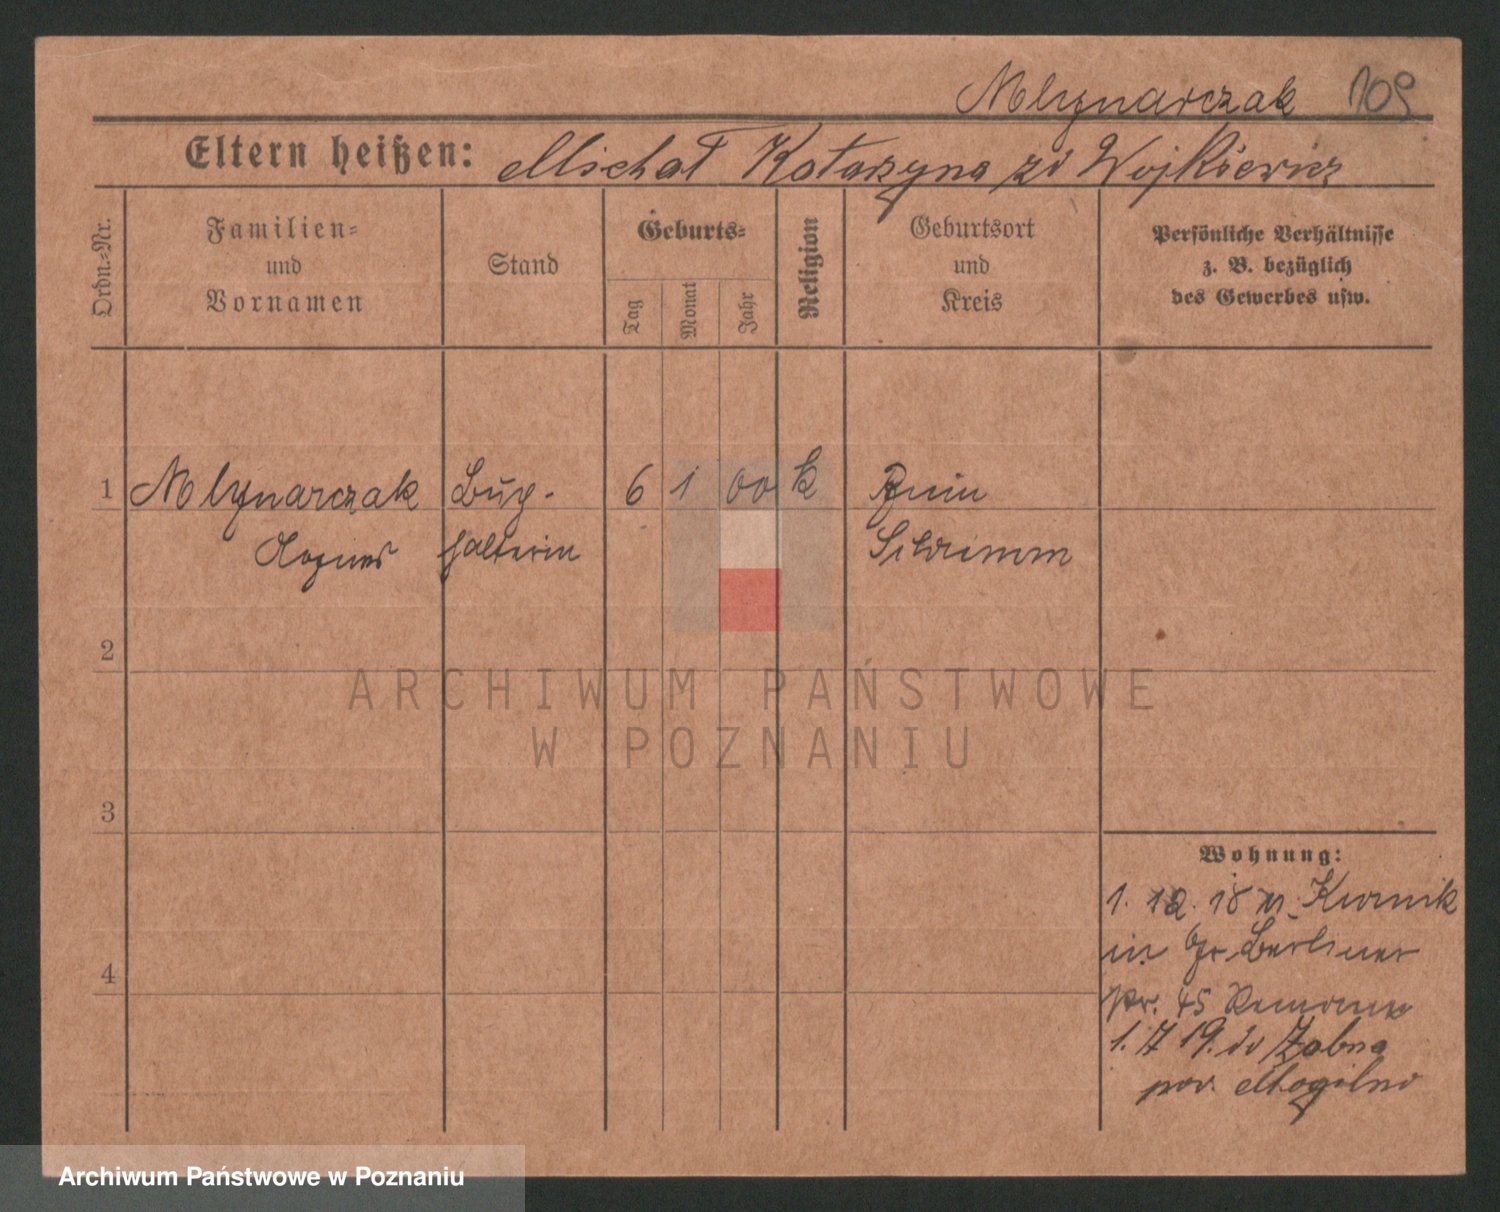 Mlynarczak 109
Eltern heißen: Michał Katarzyna zd Wojkiewicz
Ordn.-Nr.
Familien-
und
Vornamen
Stand
Geburts-
Tag
Monat
Jahr
Religion
Geburtsort
und
Kreis
Persönliche Verhältnisse
z. B. bezüglich
des Gewerbes usw.
1 Mlynarczak Buch- 6 1 00 k Bnin
Agnes halterin Schrimm
2
3
4
Wohnung:
1. 12. 18 Kurnik
in Gr. Berliner
str. 45
1. 7 19. do Żabna
pow. Mogilno
ARCHIWUM PAŃSTWOWE
W POZNANIU
Archiwum Państwowe w Poznaniu